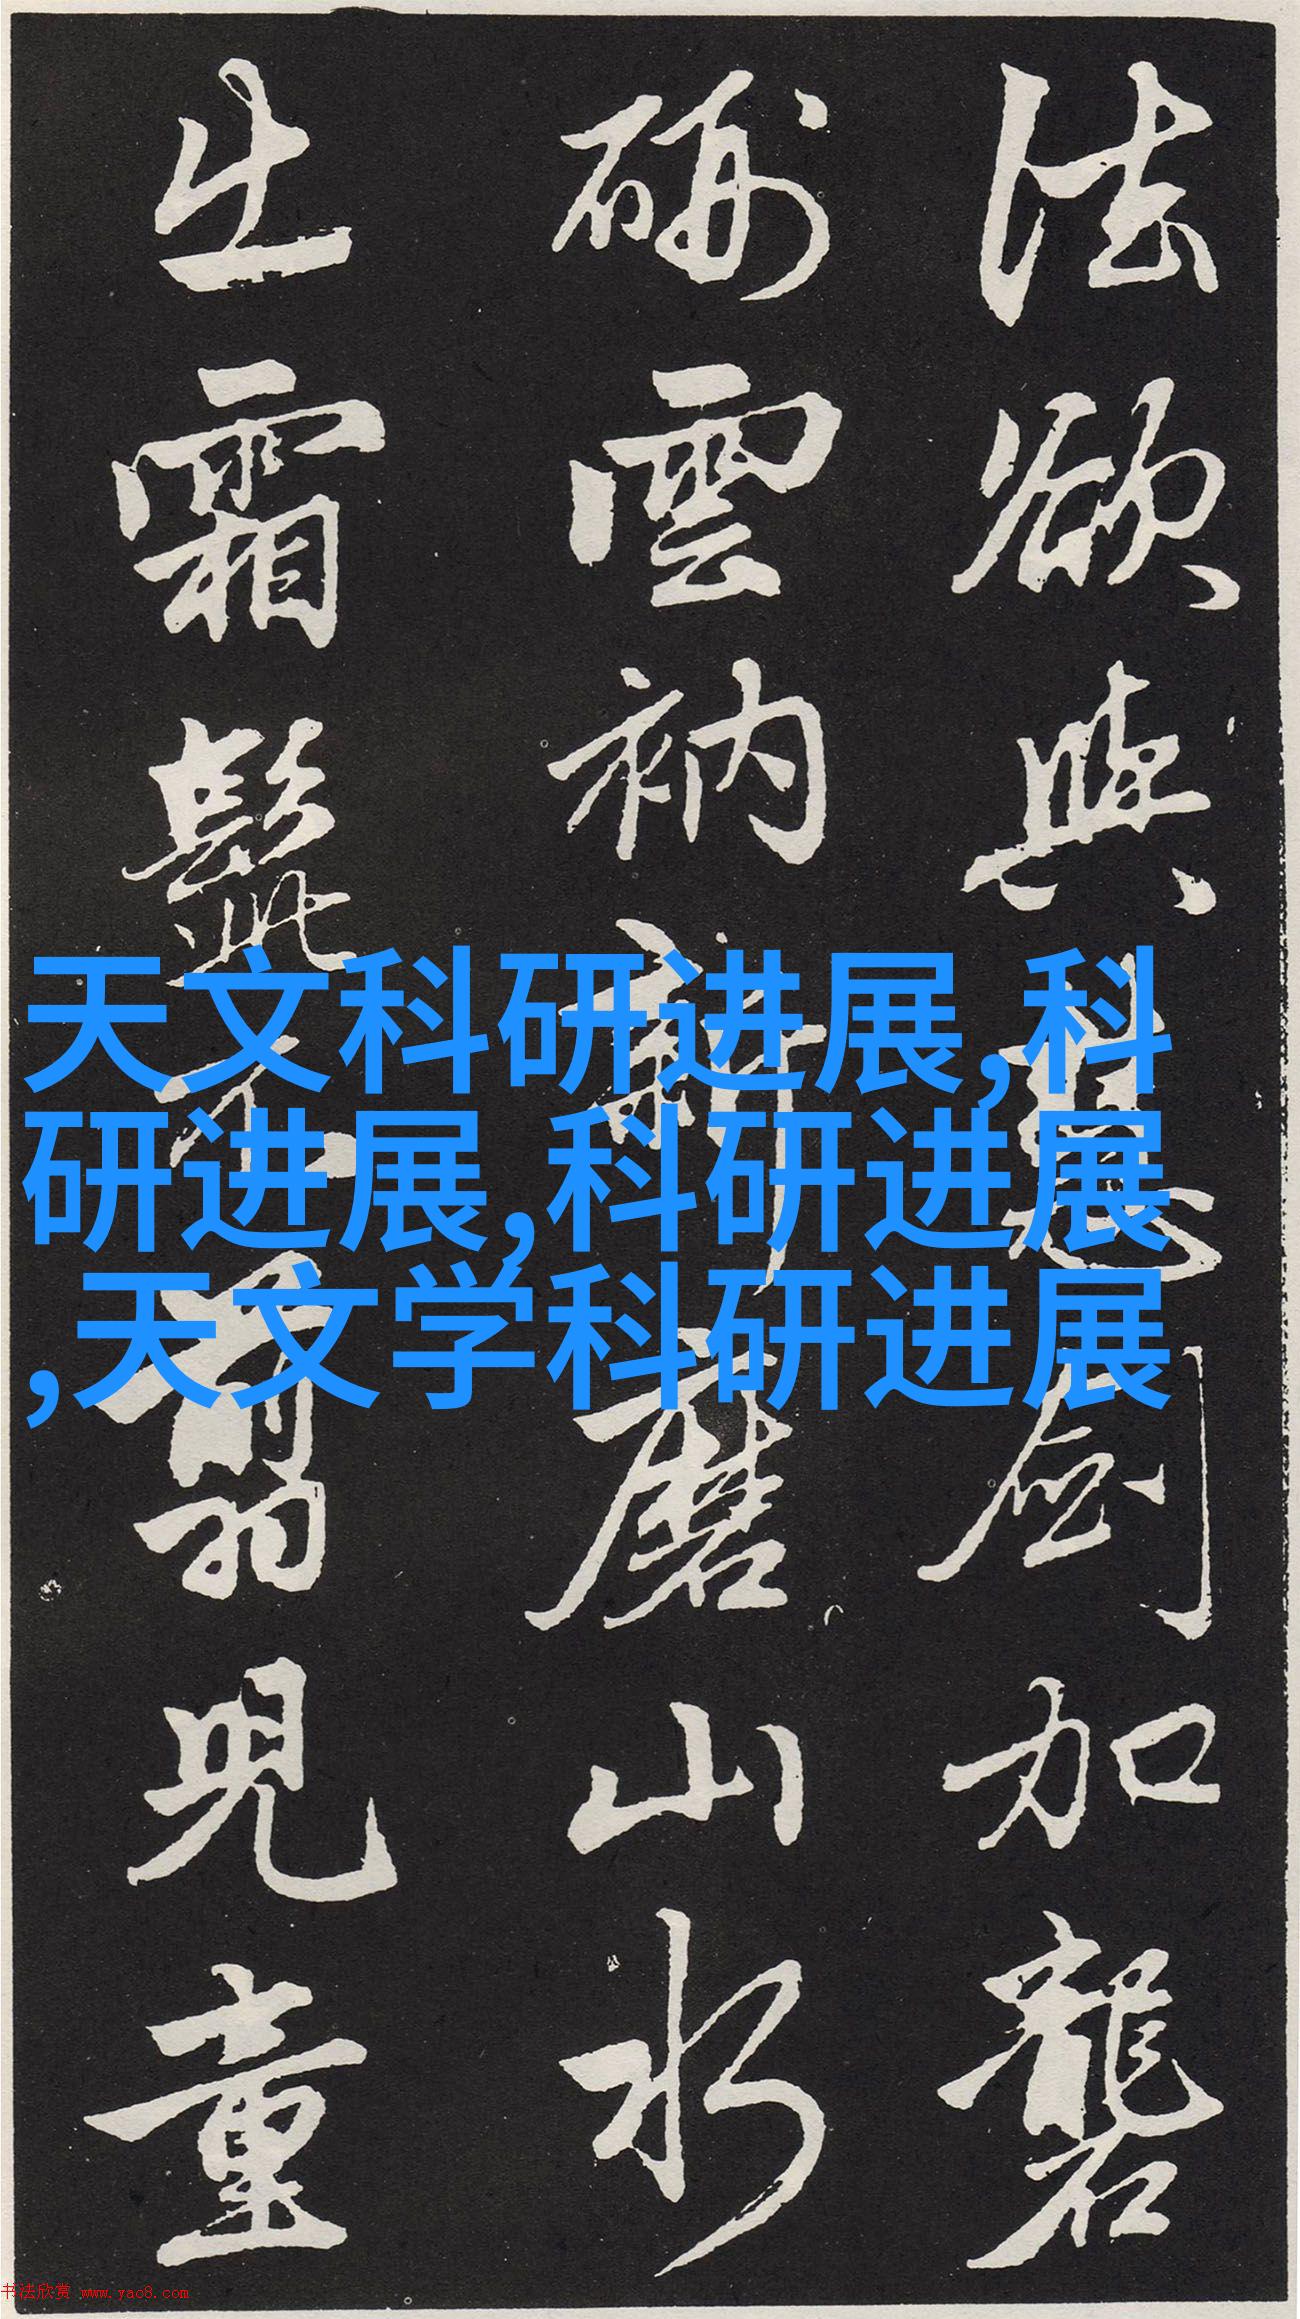 法欲與慧劍加礱
硎雲衲新磨山水
出霜髭不翦兒童
天文科研进展,科
研进展,科研进展
,天文学科研进展
书法欣赏 www.yac8.com